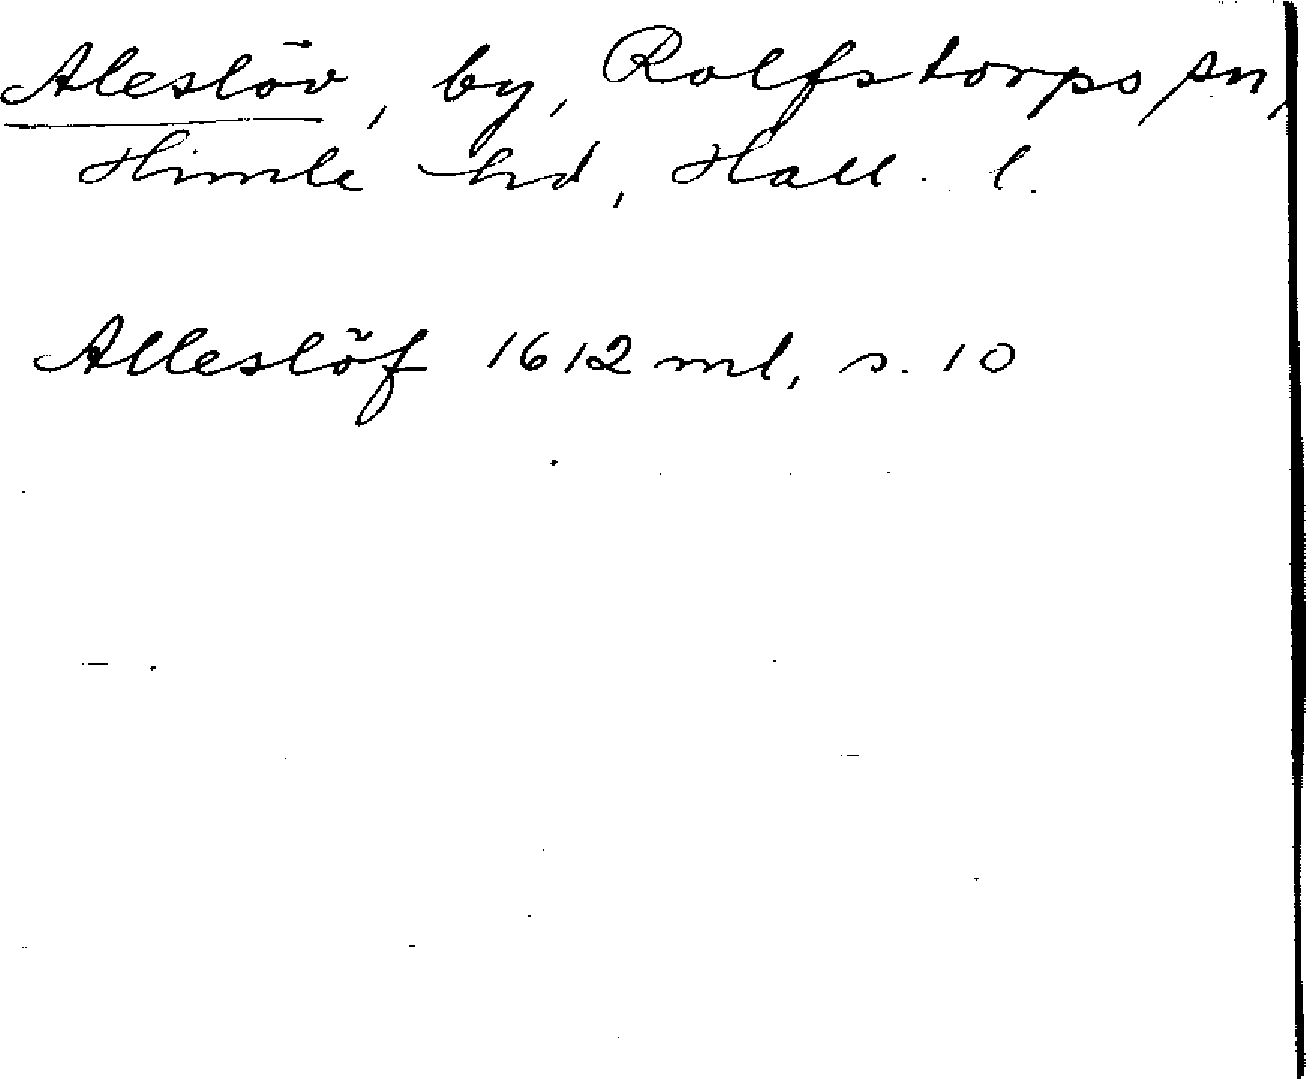 Aleslöv, by, Rolfstorps sn,
Himle hd, Hall. l.
Alleslöf 1612 ml, s. 10